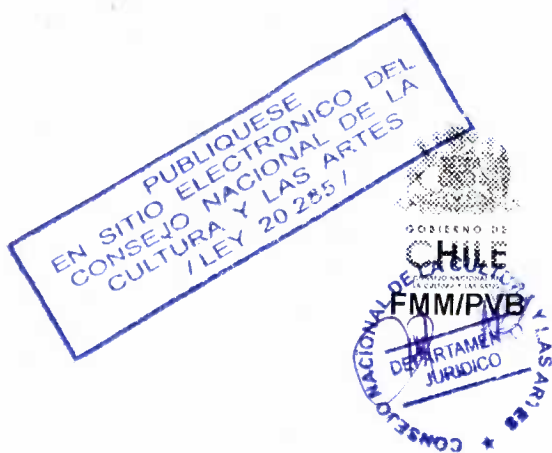 PUBLIQUESE
EN SITIO ELECTRONICO DEL
CONSEJO NACIONAL DE LA
CULTURA Y LAS ARTES
/ LEY 20 285 /
GOBIERNO DE
CHILE
CONSEJO NACIONAL DE
LA CULTURA Y LAS ARTES
FMM/PVB
CONSEJO NACIONAL DE LA CULTURA Y LAS ARTES
DEPARTAMEN
JURIDICO